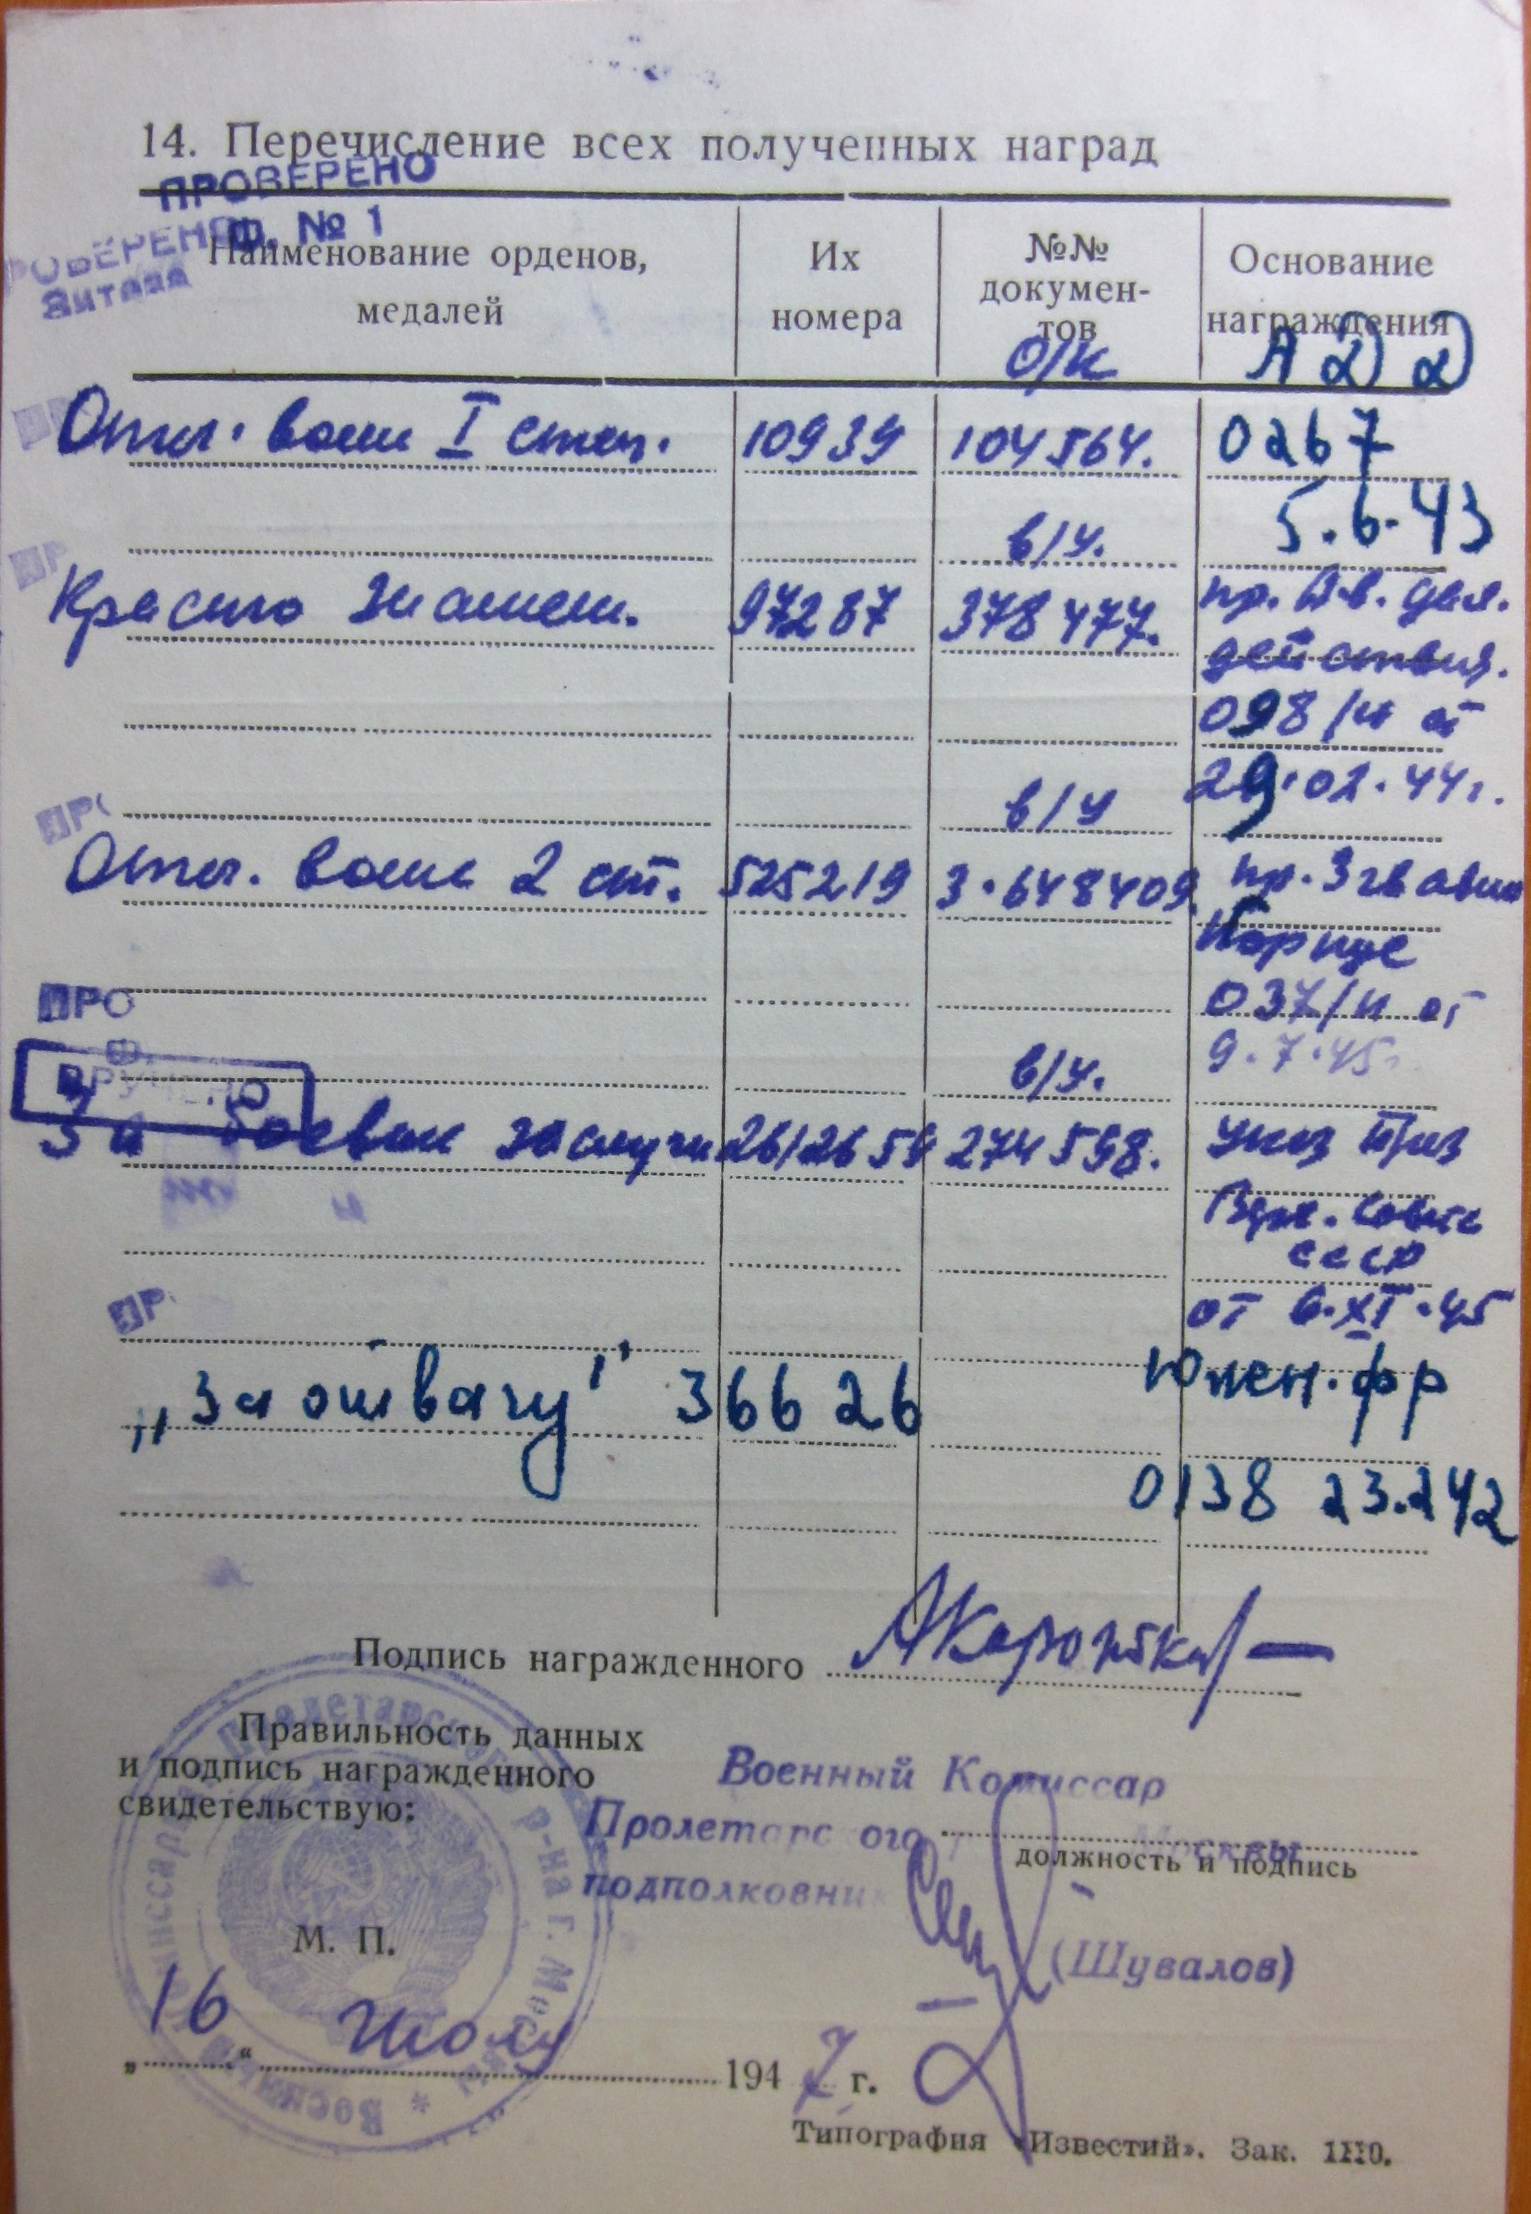 14. Перечисление всех полученных наград
ПРОВЕРЕНО
Ф. № 1
Наименование орденов, медалей
Их номера
№№ докумен-
тов
Основание награждения
О/к
АДД
Отеч. войн I степ. 10939 104564. 0267
5.6.43
в/у.
Красного Знамен. 97287 378477. пр. Ав. дал.
действия.
098/н от
29.02.44г.
в/у
Отеч. войн 2 ст. 525219 3.648409 пр. 3 гв авиа
Корпус
037/н от
9.7.45
в/у.
ВРУЧЕНО
За боевые заслуги 2612659 274598. Указ През
Верх. Совета
СССР
от 6.XI.45
„За отвагу" 36626 Южн. фр
0138 23.2 42
Подпись награжденного
Правильность данных
и подпись награжденного
свидетельствую:
Военный Комиссар
Пролетарс ого Москвы
должность и подпись
подполковник
(Шувалов)
М. П.
„16“ Июля 1947 г.
Типография «Известий». Зак.